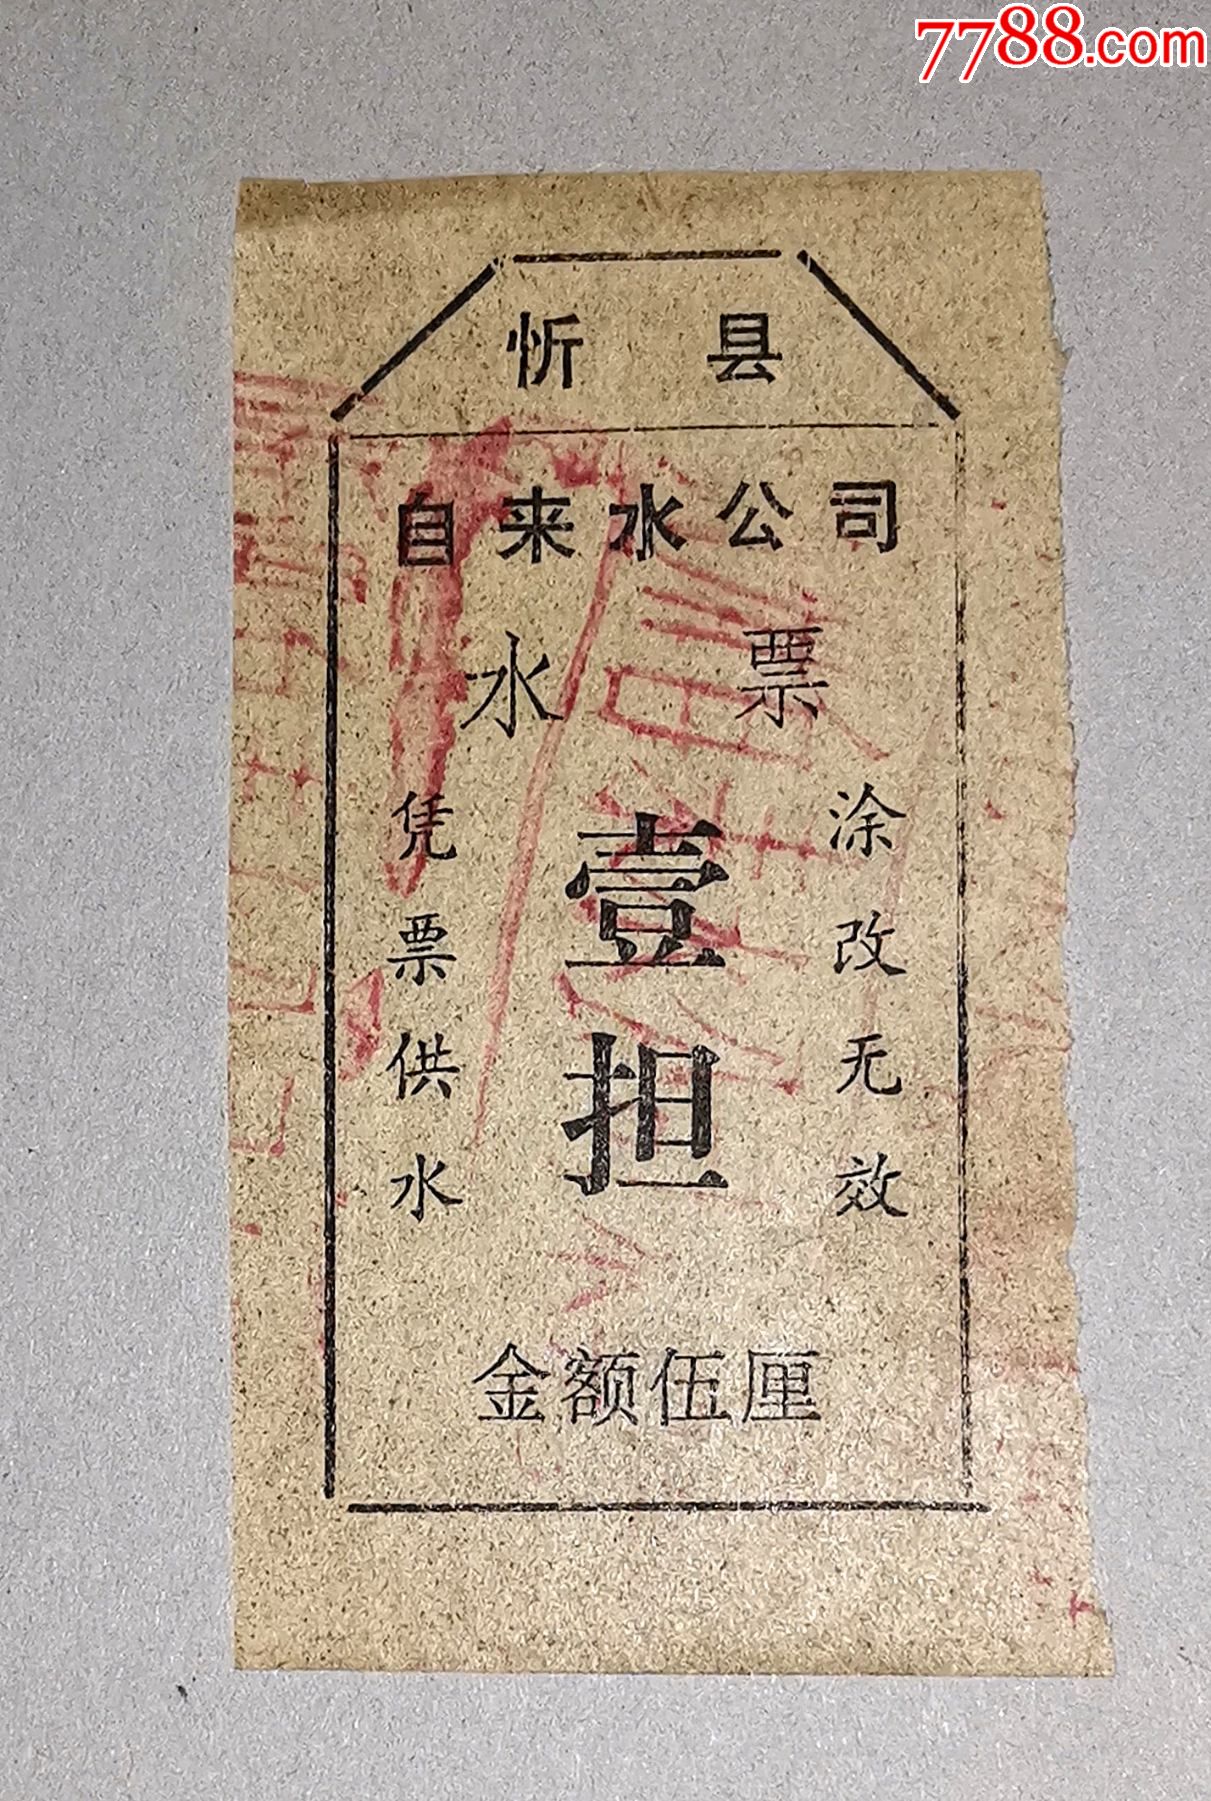 7788.com
忻县
自来水公司
水票
凭票供水
壹担
涂改无效
金额伍厘